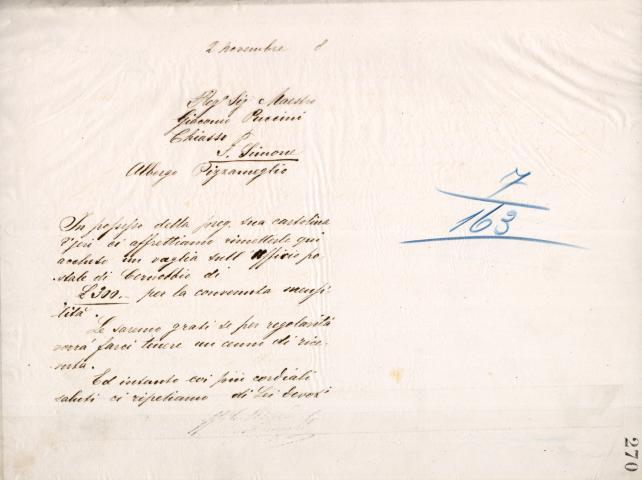 2 novembre 8
Preg. Sig. Maestro
Giacomo Puccini
Chiasso P.
S. Simone
Albergo Pizzameglio
7
163
In possesso della preg. sua cartolina
d'jeri ci affrettiamo rimetterle qui
accluso un vaglia sull'Ufficio po-
stale di Cernobbio di
£ 300.- per la convenuta mensi-
lità.
Le saremo grati se per regolarità
vorrà farci tenere un cenno di rice-
vuta.
Ed intanto coi più cordiali
saluti ci ripetiamo di Lei devoti
270